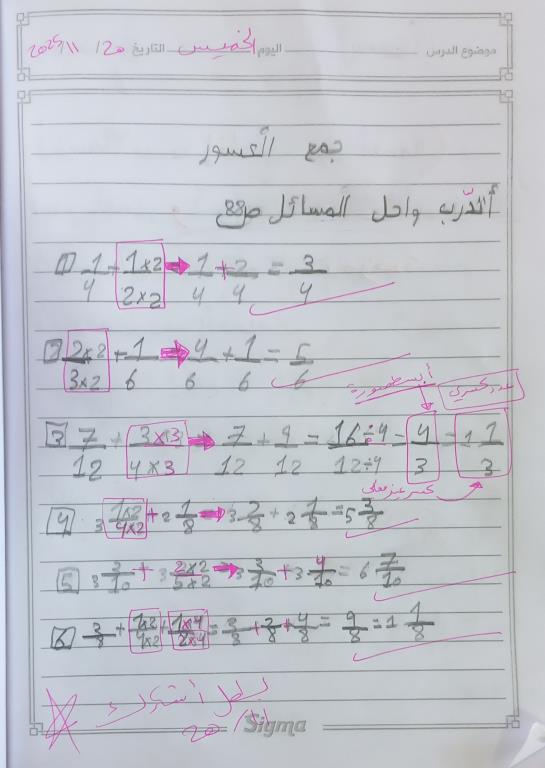 موضوع الدرس اليوم الخميس التاريخ 20/11/2025
جمع الكسور
أتدّرب واحل المسائل ص88
1 1/4 + 1×2/2×2 → 1/4 + 2/4 = 3/4
2 2×2/3×2 + 1/6 → 4/6 + 1/6 = 5/6
أبسط صورة عدد كسري
3 7/12 + 3×3/4×3 → 7/12 + 9/12 = 16÷4/12÷4 = 4/3 = 1 1/3
كسر غير فعلي
4 3 1×2/4×2 + 2 1/8 → 3 2/8 + 2 1/8 = 5 3/8
5 3 3/10 + 3 2×2/5×2 → 3 3/10 + 3 4/10 = 6 7/10
6 3/8 + 1×2/4×2 + 1×4/2×4 = 3/8 + 2/8 + 4/8 = 9/8 = 1 1/8
بطل
20/11
Sigma